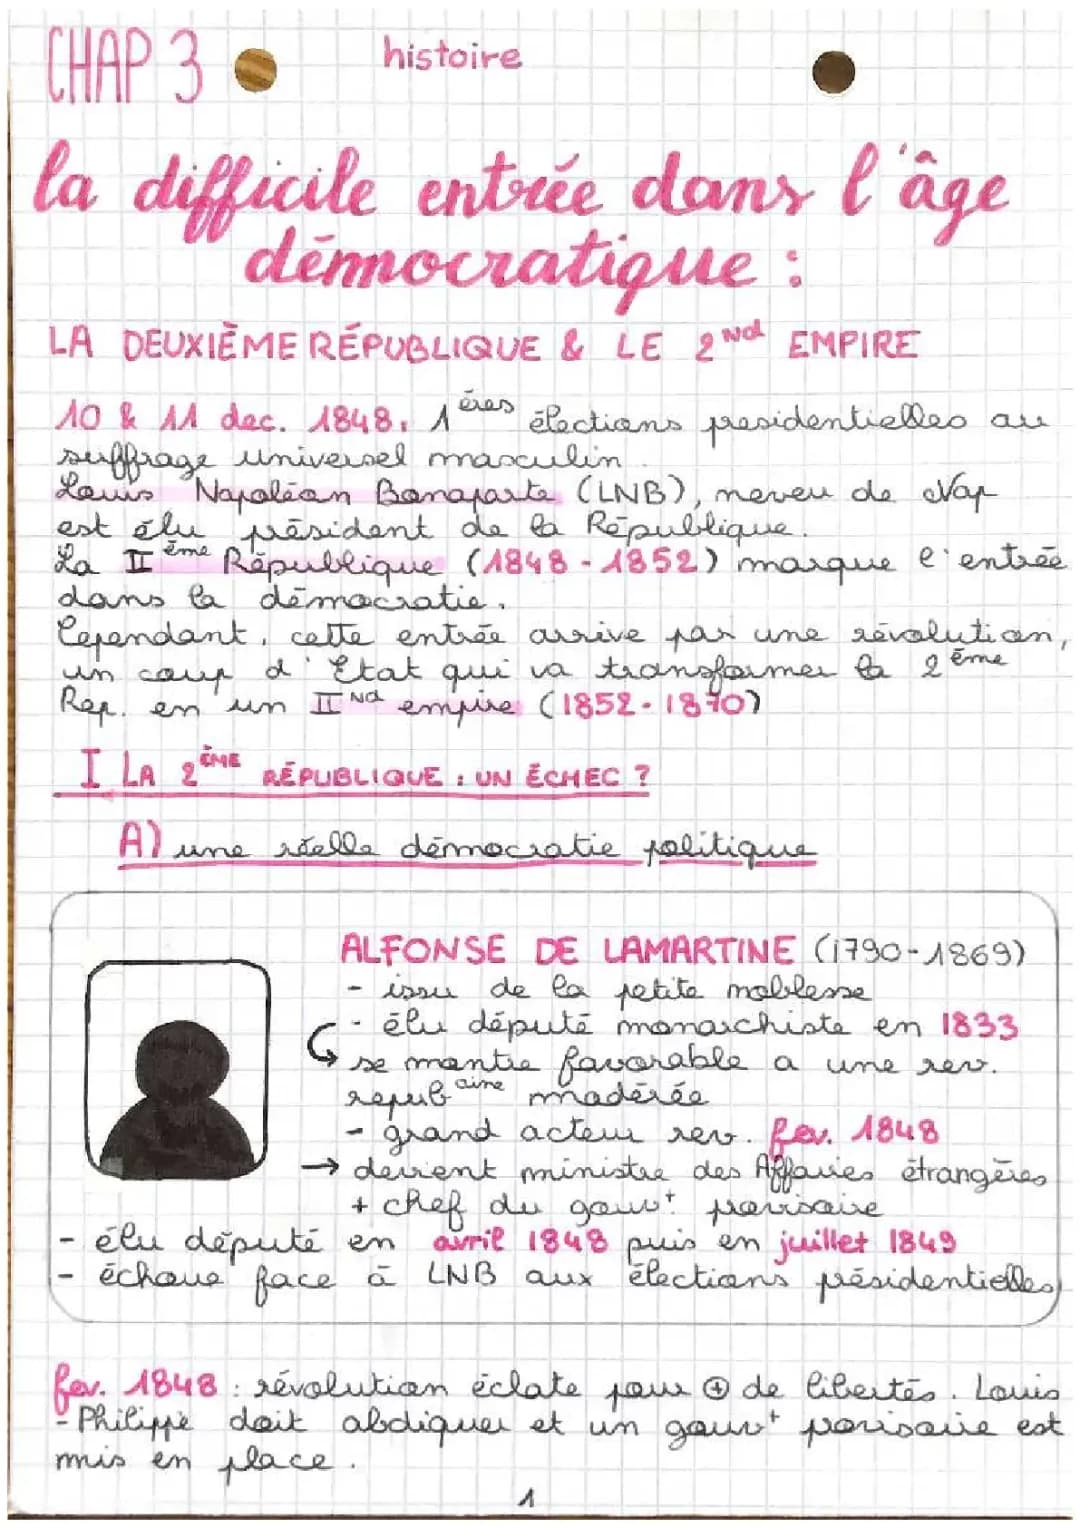 CHAP 3
histoire
la difficile entrée dans l'âge
démocratique :
LA DEUXIÈME RÉPUBLIQUE & LE 2Nd EMPIRE
10 & 11 dec. 1848. 1ères élections presidentielles au
suffrage universel masculin.
Louis Napoléon Bonaparte (LNB), neveu de Nap
est élu président de la République.
La IIème République (1848 - 1852) marque l'entrée
dans la démocratie.
Cependant, cette entrée arrive par une révolution,
un coup d'Etat qui va transformer la 2ème
Rep. en un IINd empire (1852-1870)
I LA 2ÈME RÉPUBLIQUE : UN ÉCHEC ?
A) une réelle démocratie politique
ALFONSE DE LAMARTINE (1790-1869)
- issu de la petite noblesse
- élu député monarchiste en 1833
se montre favorable a une rev.
republicaine modérée
- grand acteur rev. fev. 1848
→ devient ministre des Affaires étrangères
+ chef du gouvt. provisoire
- élu député en avril 1848 puis en juillet 1849
- échoue face à LNB aux élections présidentielles
fev. 1848 : révolution éclate pour ⊕ de libertés. Louis
-Philippe doit abdiquer et un gouvt provisoire est
mis en place.
1